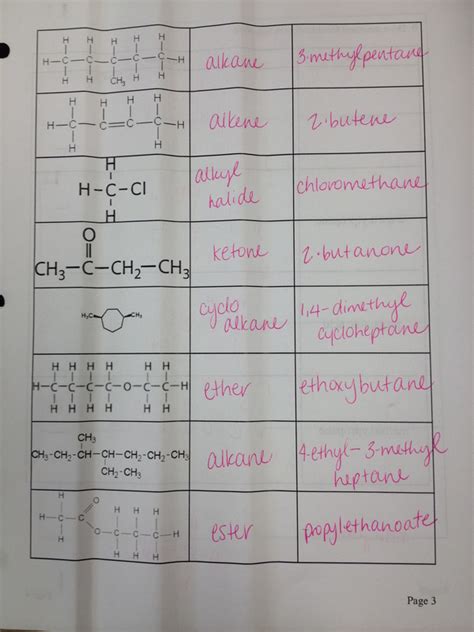 H H H H H
H-C-C-C-C-C-H
H H CH₃ H H
alkane
3-methylpentane
H H H H
H-C-C=C-C-H
H H
alkene
2-butene
H
H-C-Cl
H
alkyl
halide
chloromethane
O
CH₃-C-CH₂-CH₃
ketone
2-butanone
H₃C CH₃
cyclo
alkane
1,4-dimethyl
cycloheptane
H H H H H H
H-C-C-C-C-O-C-C-H
H H H H H H
ether
ethoxybutane
CH₃
CH₃-CH₂-CH-CH-CH₂-CH₂-CH₃
CH₂-CH₃
alkane
4-ethyl-3-methyl
heptane
H O
H-C-C H H H
H O-C-C-C-H
H H H
ester
propylethanoate
Page 3